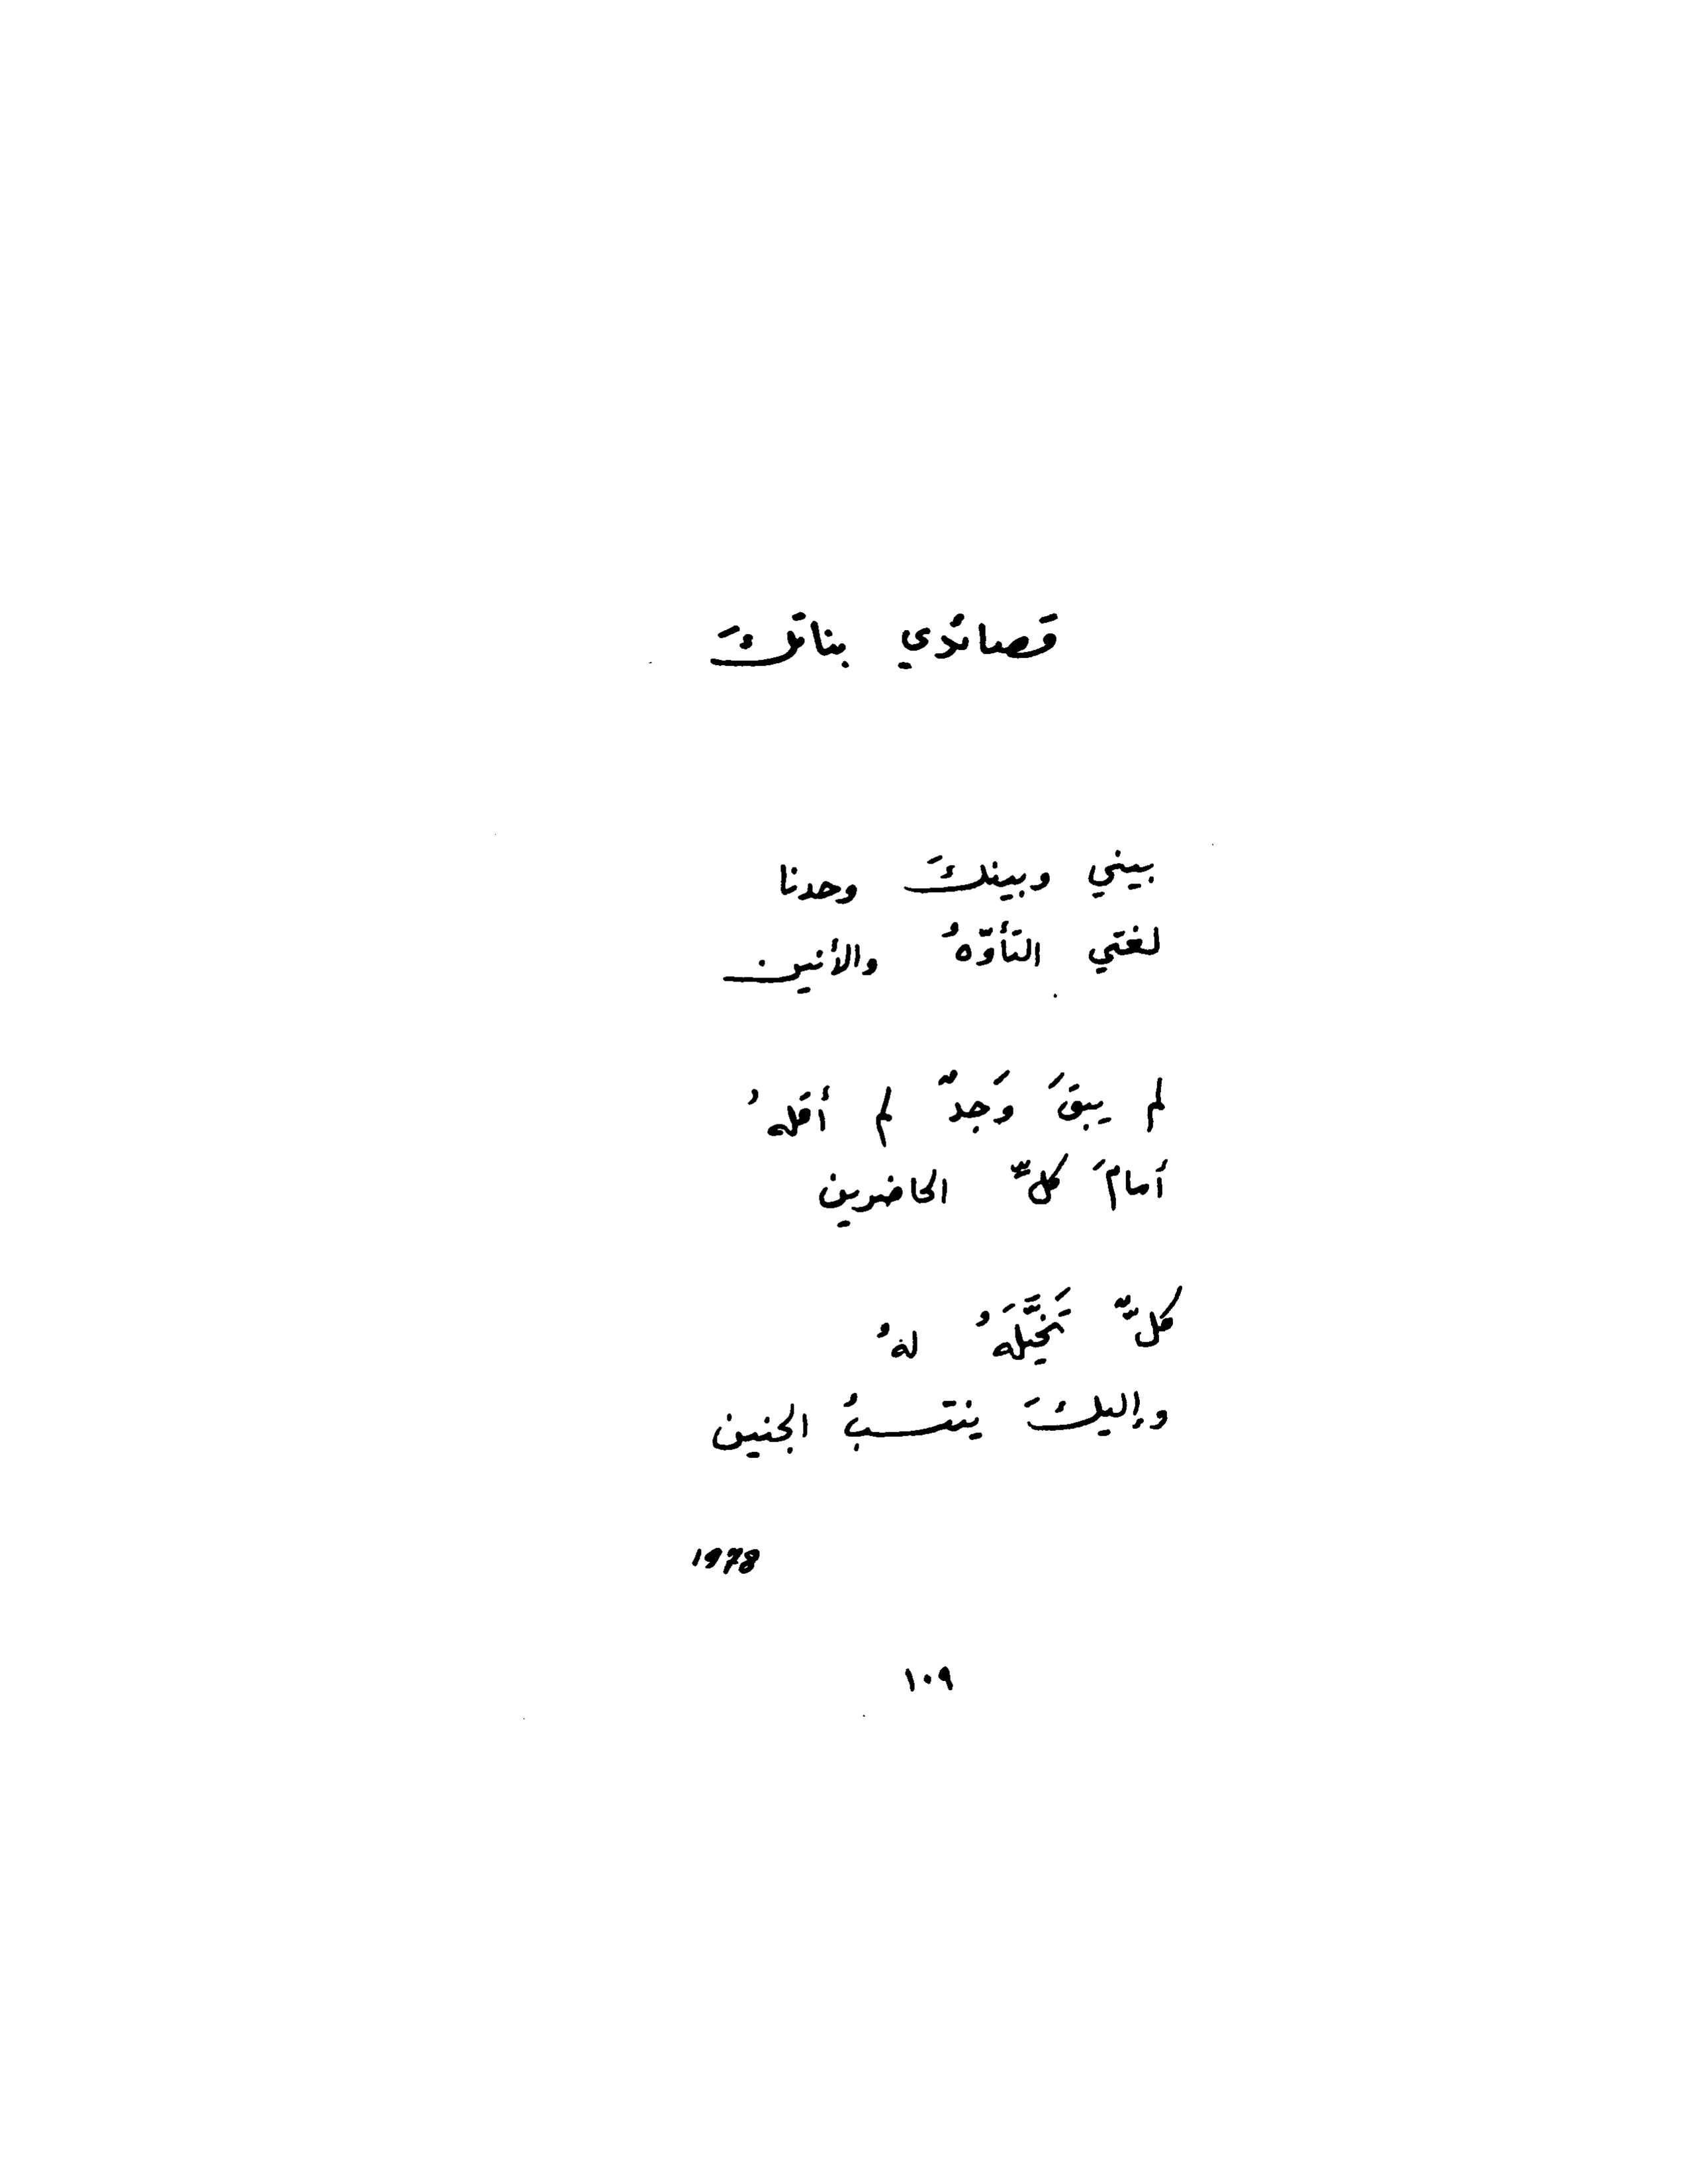 قصائدي بناتكَ
بيني وبينكَ وحدنا
لغتي التأوّهُ والأنين
لم يبقَ وَجدٌ لم أقلهُ
أمامَ كلِّ الحاضرين
كلٌّ تَخَيَّلَهُ لهُ
وإليكَ ينتسبُ الجنين
1978
١٠٩